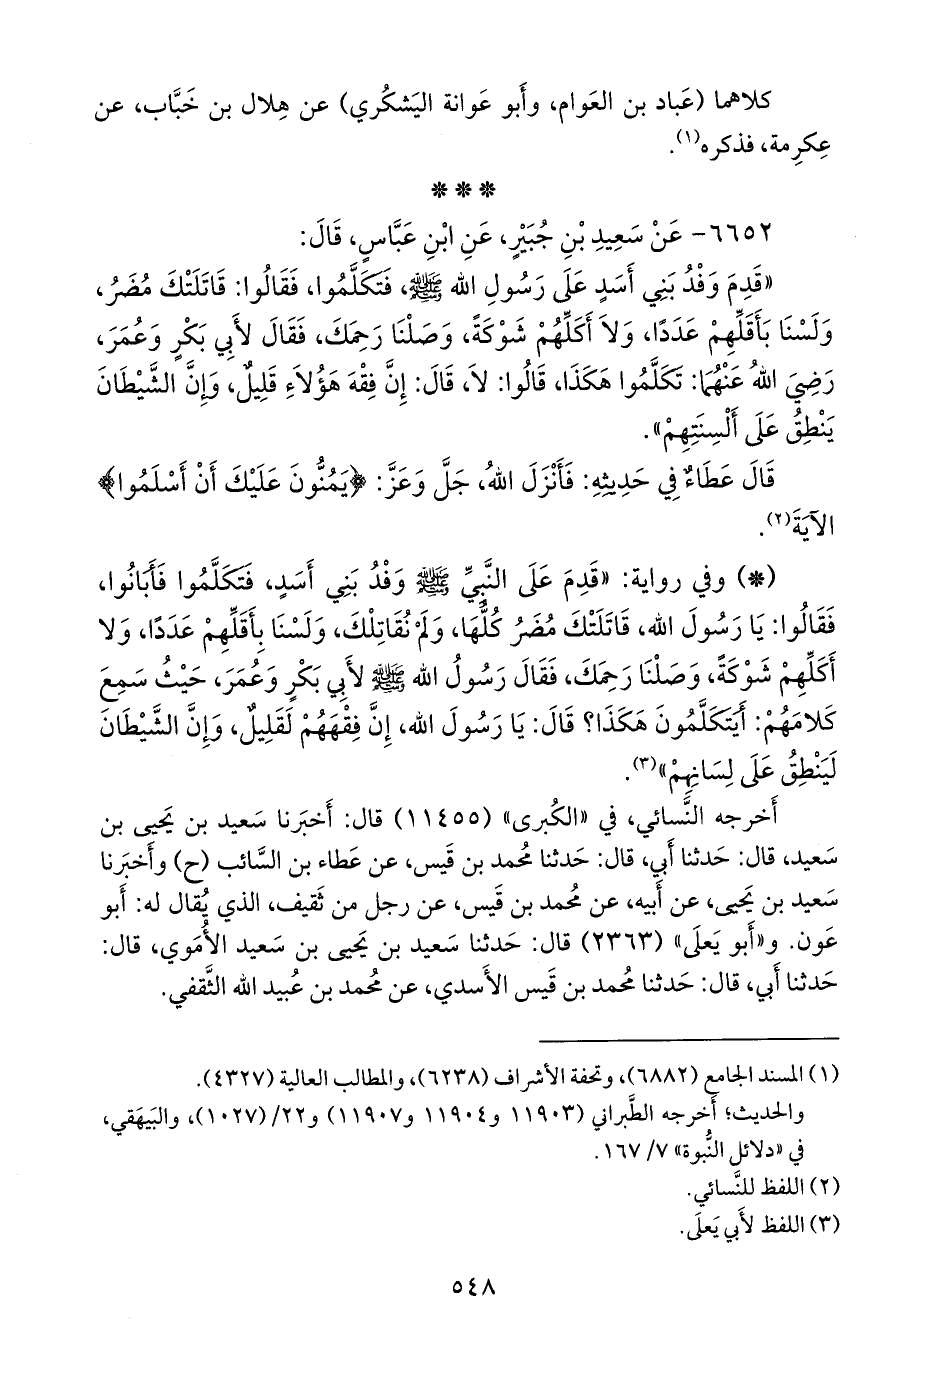 كلاهما (عَباد بن العَوام، وأَبو عَوانة اليَشكُري) عن هِلال بن خَبَّاب، عن
عِكرِمة، فذكره(١).
* * *
٦٦٥٢- عَنْ سَعِيدِ بْنِ جُبَيْرٍ، عَنِ ابْنِ عَبَّاسٍ، قَالَ:
«قَدِمَ وَفْدُ بَنِي أَسَدٍ عَلَى رَسُولِ الله ﷺ، فَتَكَلَّمُوا، فَقَالُوا: قَاتَلَتْكَ مُضَرُ،
وَلَسْنَا بِأَقَلِّهِمْ عَدَدًا، وَلاَ أَكَلِّهِمْ شَوْكَةً، وَصَلْنَا رَحِمَكَ، فَقَالَ لأَبِي بَكْرٍ وَعُمَرَ،
رَضِيَ اللهُ عَنْهُمَا: تَكَلَّمُوا هَكَذَا، قَالُوا: لاَ، قَالَ: إِنَّ فِقْهَ هَؤُلاَءِ قَلِيلٌ، وَإِنَّ الشَّيْطَانَ
يَنْطِقُ عَلَى أَلْسِنَتِهِمْ».
قَالَ عَطَاءٌ فِي حَدِيثِهِ: فَأَنْزَلَ اللهُ، جَلَّ وَعَزَّ: ﴿يَمُنُّونَ عَلَيْكَ أَنْ أَسْلَمُوا﴾
الآيَةَ(٢).
(*) وفي رواية: «قَدِمَ عَلَى النَّبِيِّ ﷺ وَفْدُ بَنِي أَسَدٍ، فَتَكَلَّمُوا فَأَبَانُوا،
فَقَالُوا: يَا رَسُولَ الله، قَاتَلَتْكَ مُضَرُ كُلُّهَا، وَلَمْ نُقَاتِلْكَ، وَلَسْنَا بِأَقَلِّهِمْ عَدَدًا، وَلا
أَكَلِّهِمْ شَوْكَةً، وَصَلْنَا رَحِمَكَ، فَقَالَ رَسُولُ الله ﷺ لأَبِي بَكْرٍ وَعُمَرَ، حَيْثُ سَمِعَ
كَلامَهُمْ: أَيَتَكَلَّمُونَ هَكَذَا؟ قَالَ: يَا رَسُولَ الله، إِنَّ فِقْهَهُمْ لَقَلِيلٌ، وَإِنَّ الشَّيْطَانَ
لَيَنْطِقُ عَلَى لِسَانِهِمْ»(٣).
أَخرجه النَّسائي، في «الكُبرى» (١١٤٥٥) قال: أَخبَرنا سَعيد بن يَحيى بن
سَعيد، قال: حَدثنا أَبي، قال: حَدثنا مُحمد بن قَيس، عن عَطاء بن السَّائب (ح) وأَخبَرنا
سَعيد بن يَحيى، عن أَبيه، عن مُحمد بن قَيس، عن رجل من ثَقيف، الذي يُقال له: أَبو
عَون. و«أَبو يَعلَى» (٢٣٦٣) قال: حَدثنا سَعيد بن يَحيى بن سَعيد الأُمَوي، قال:
حَدثنا أَبي، قال: حَدثنا مُحمد بن قَيس الأَسدي، عن مُحمد بن عُبيد الله الثَّقفي.
(١) المسند الجامع (٦٨٨٢)، وتحفة الأشراف (٦٢٣٨)، والمطالب العالية (٤٣٢٧).
والحديث؛ أَخرجه الطَّبراني (١١٩٠٣ و١١٩٠٤ و١١٩٠٧) و٢٢/ (١٠٢٧)، والبَيهَقي،
في «دلائل النُّبوة» ٧/ ١٦٧.
(٢) اللفظ للنَّسائي.
(٣) اللفظ لأَبي يَعلَى.
٥٤٨